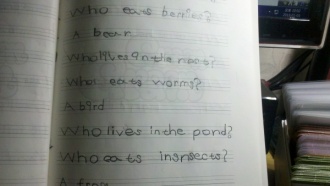 Who eats berries?
A bear
Who lives in the nest?
Who eats worms?
A bird
Who lives in the pond?
Who eats inspsects?
A frog